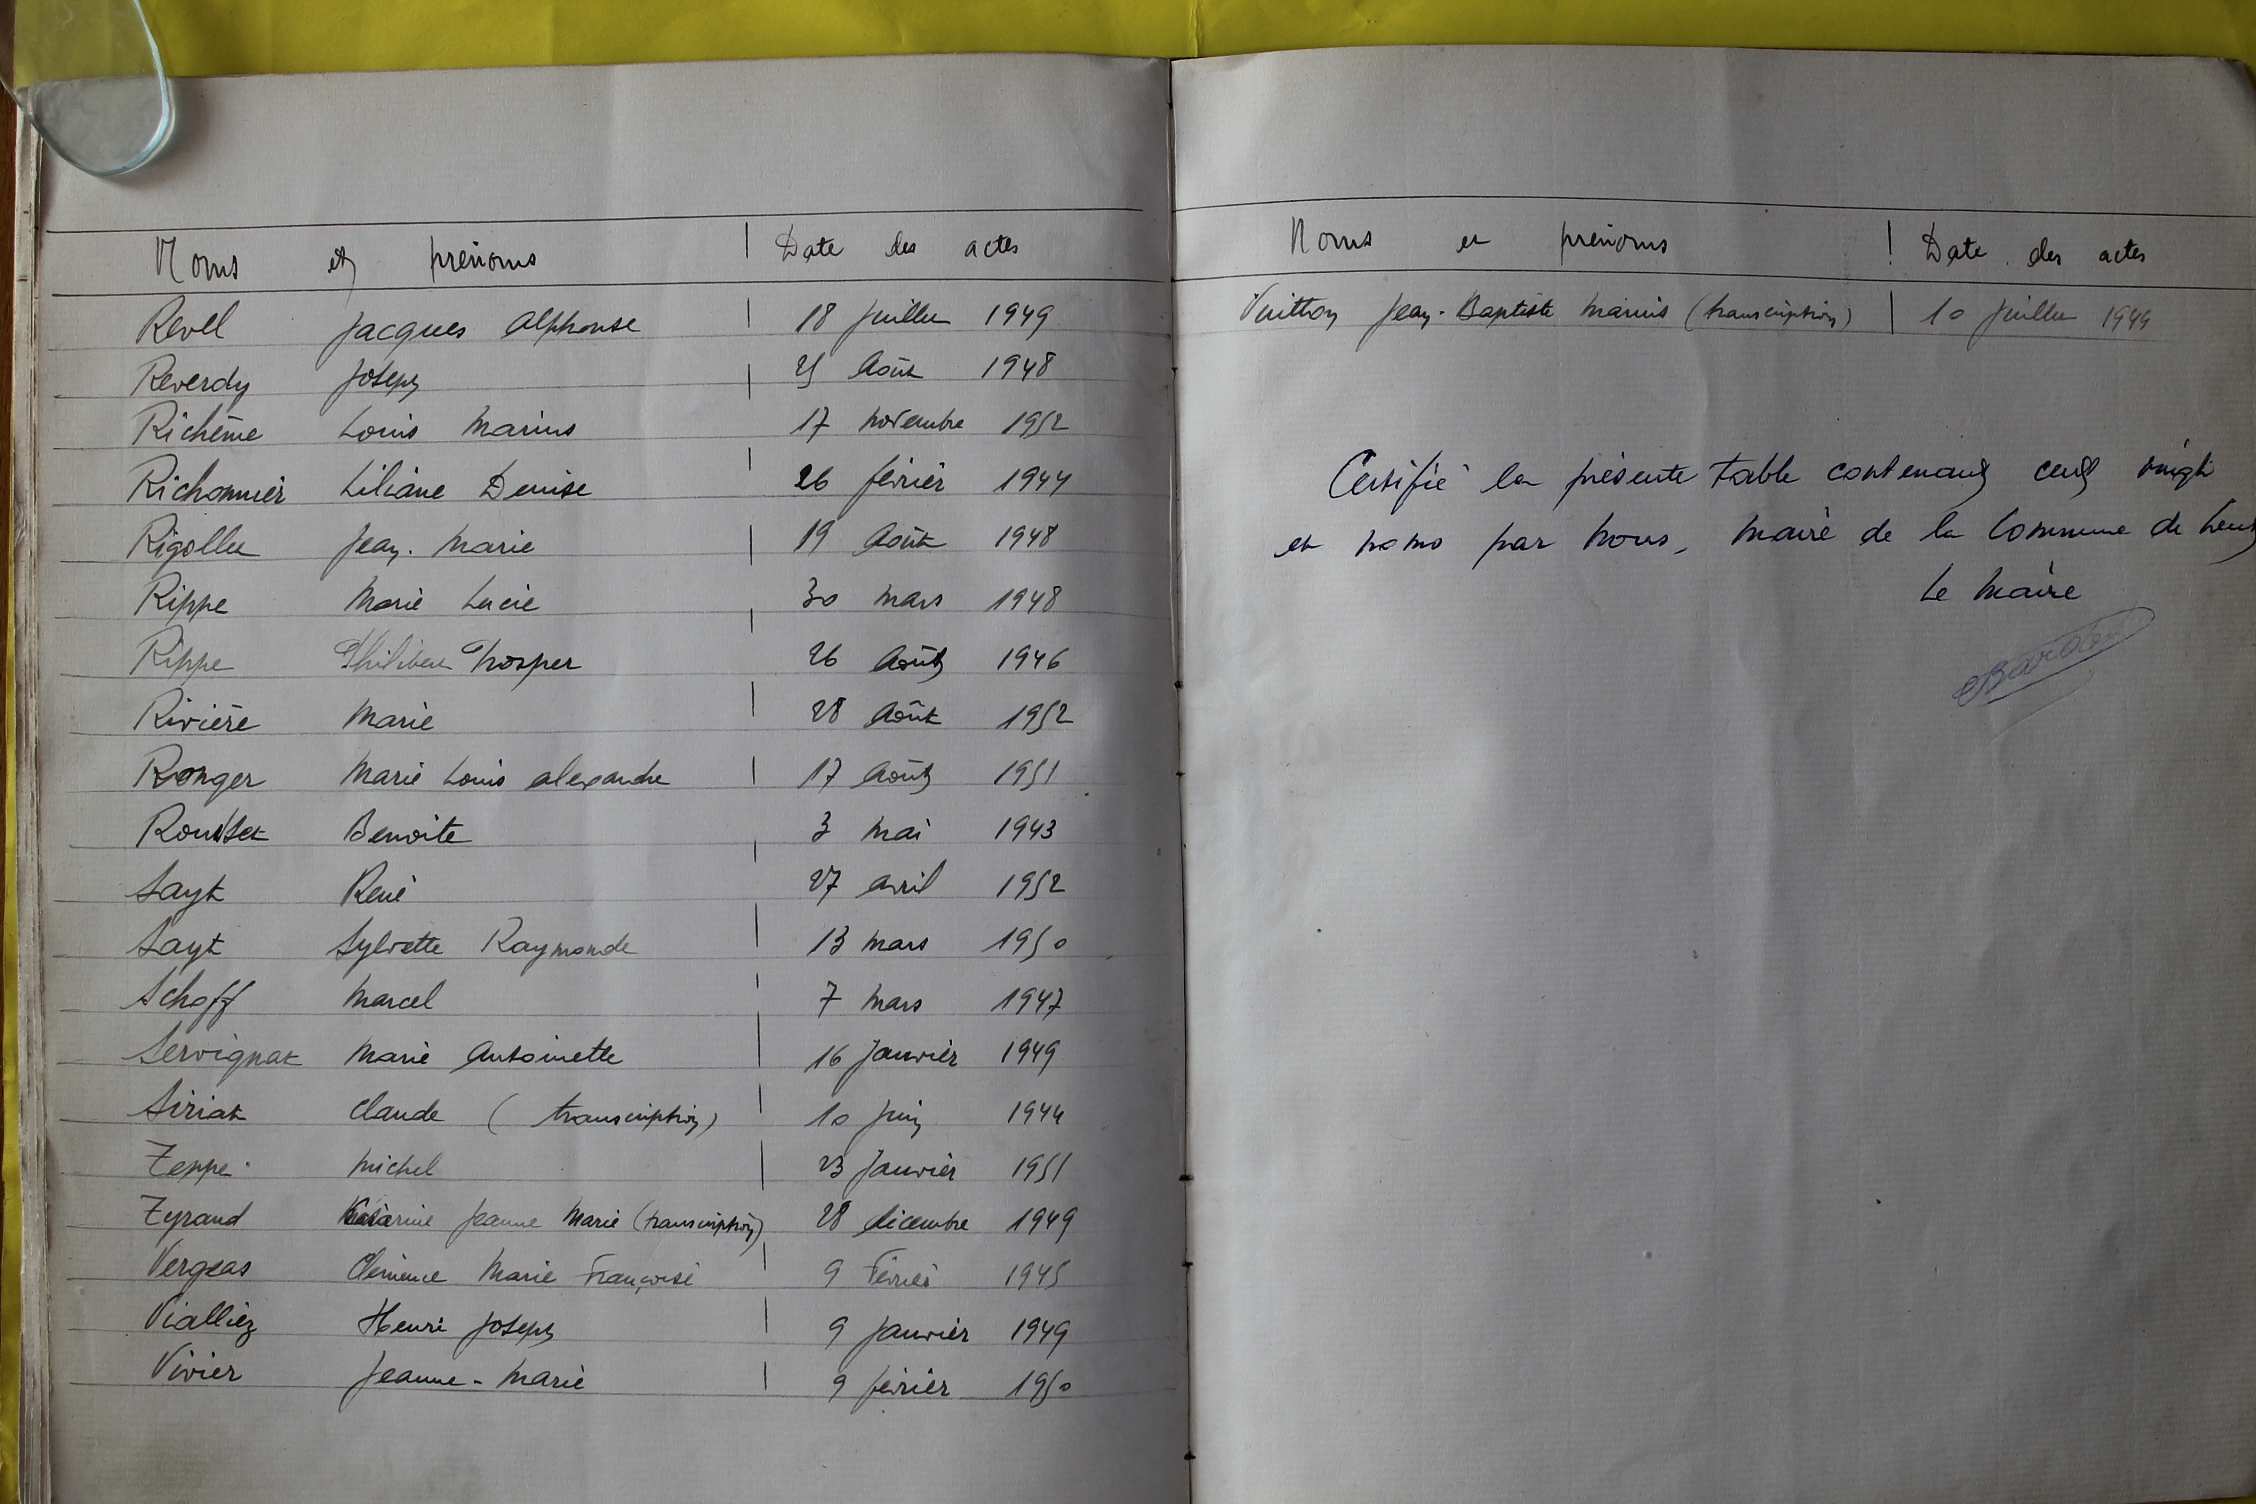 Noms et prénoms Date des actes
Revel Jacques Alphonse 18 Juillet 1949
Reverdy Joseph 25 Août 1948
Richême Louis Marius 17 novembre 1952
Richonnier Liliane Denise 26 février 1944
Rigollet Jean-Marie 19 Août 1948
Rippe Marie Lucie 30 mars 1948
Rippe Philibert Prosper 26 Août 1946
Rivière Marie 28 Août 1952
Ronger Marie Louis Alexandre 17 Août 1951
Rousset Benoite 3 mai 1943
Sayt René 27 avril 1952
Sayt Sylvette Raymonde 13 mars 1950
Schoff Marcel 7 mars 1947
Servignat Marie Antoinette 16 Janvier 1949
Siriat Claude (transcription) 10 Juin 1944
Teppe Michel 23 Janvier 1951
Tyrand Jeanne Marie (transcription) 28 décembre 1949
Vergeas Clémence Marie Françoise 9 Février 1945
Vialliez Henri Joseph 9 Janvier 1949
Vivier Jeanne-Marie 9 février 1950
Noms et prénoms Date des actes
Vuitton Jean-Baptiste Marius (transcription) 10 Juillet 1944
Certifié la présente table contenant cent vingt
et noms par nous, Maire de la Commune de
Le Maire